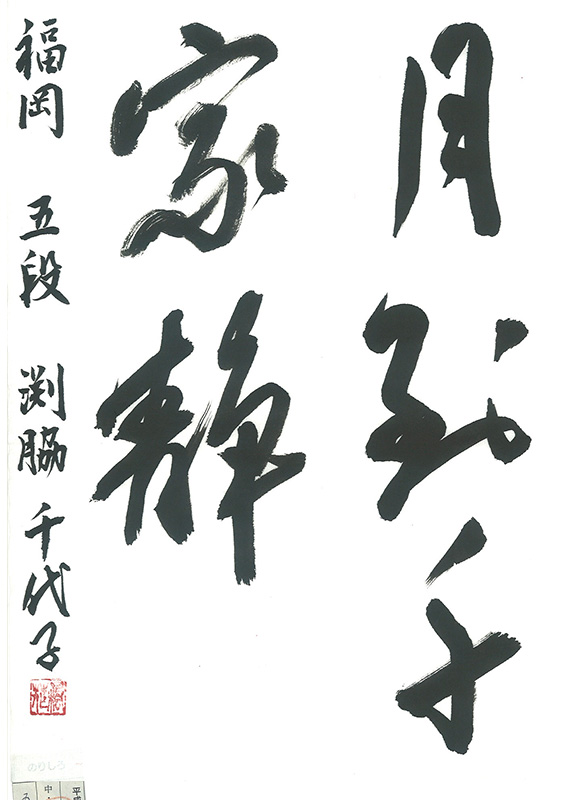 月到千
家静
福岡 五段 渕脇千代子
のりしろ